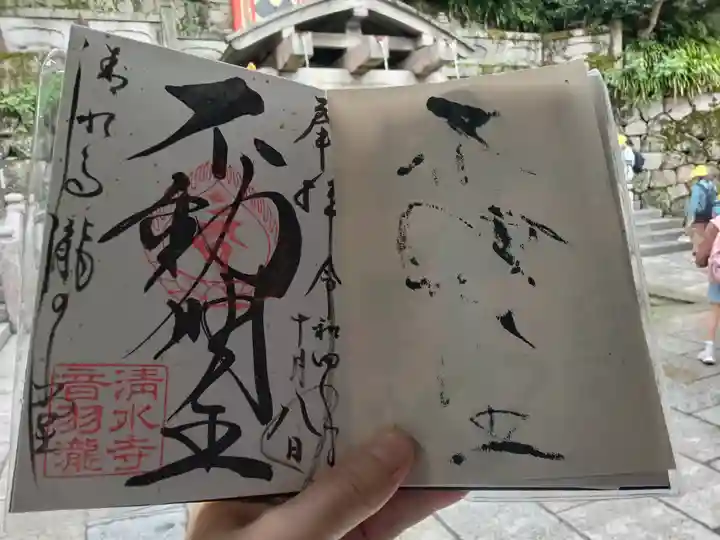 奉拝 令和四年
十月八日
不動明王
清水寺
音羽瀧